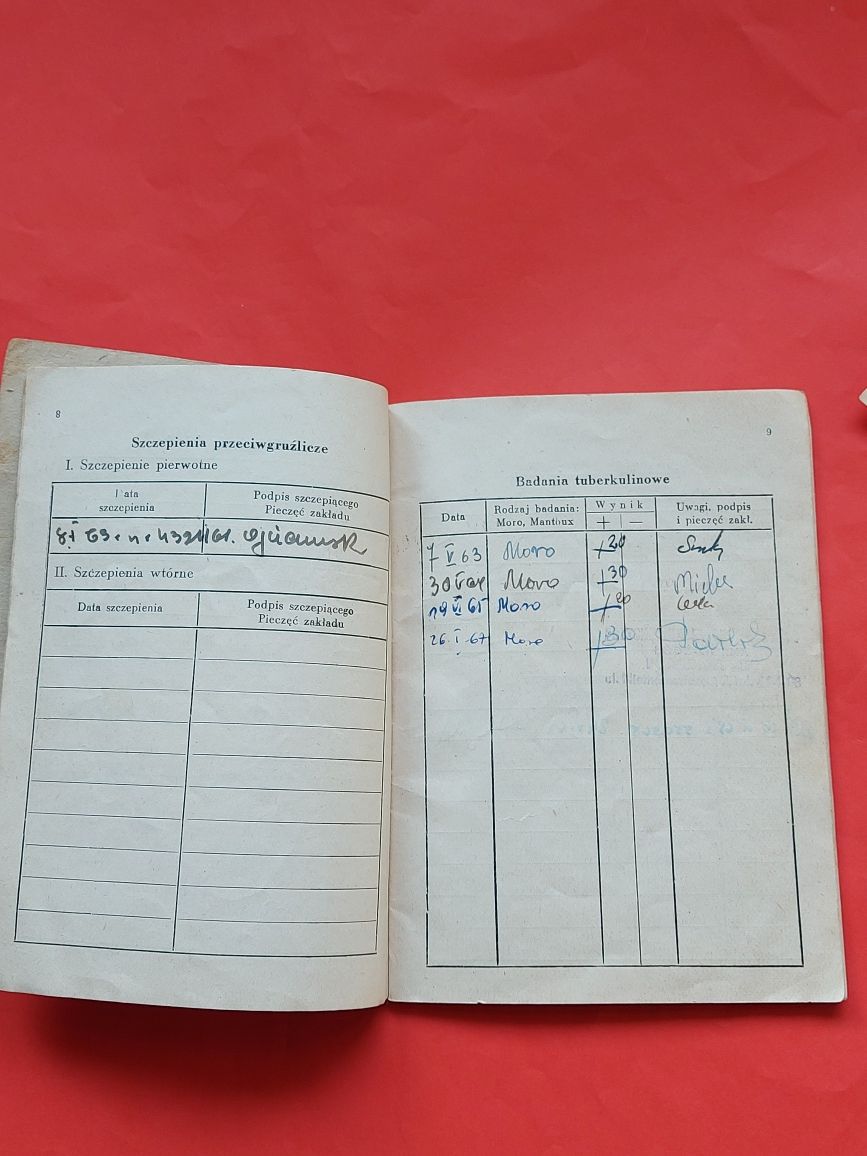 8
Szczepienia przeciwgruźlicze
I. Szczepienie pierwotne
Data szczepienia
Podpis szczepiącego Pieczęć zakładu
8.I 63
II. Szczepienia wtórne
Data szczepienia
Podpis szczepiącego Pieczęć zakładu
9
Badania tuberkulinowe
Data
Rodzaj badania: Moro, Mantoux
Wynik + | —
Uwagi, podpis i pieczęć zakł.
7 V 63 Moro + 20
30 Moro + 30
19 VI 65 Moro + 20
26. I. 67 Moro + 30